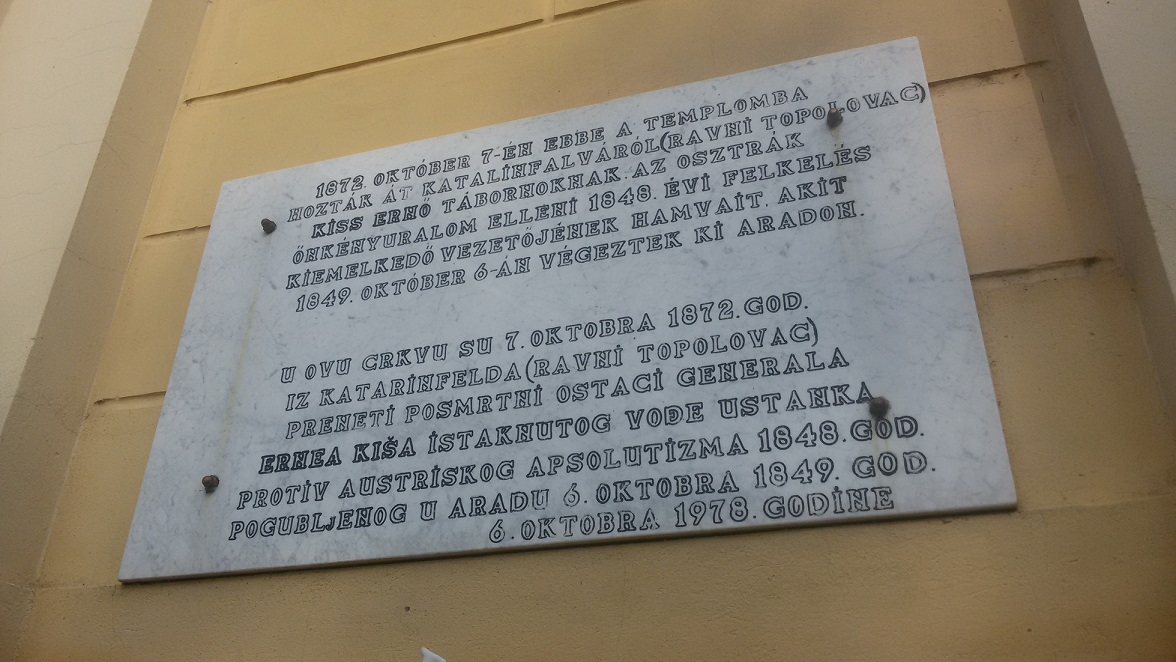 1872. OKTÓBER 7-ÉN EBBE A TEMPLOMBA
HOZTÁK ÁT KATALINFALVÁRÓL(RAVNI TOPOLOVAC)
KISS ERNŐ TÁBORNOKNAK. AZ OSZTRÁK
ÖNKÉNYURALOM ELLENI 1848. ÉVI FELKELÉS
KIEMELKEDŐ VEZETŐJÉNEK HAMVAIT, AKIT
1849. OKTÓBER 6-ÁN VÉGEZTEK KI ARADON.
U OVU CRKVU SU 7. OKTOBRA 1872. GOD.
IZ KATARINFELDA(RAVNI TOPOLOVAC)
PRENETI POSMRTNI OSTACI GENERALA
ERNEA KIŠA ISTAKNUTOG VOĐE USTANKA
PROTIV AUSTRISKOG APSOLUTIZMA 1848. GOD.
POGUBLJENOG U ARADU 6. OKTOBRA 1849. GOD.
6. OKTOBRA 1978. GODINE